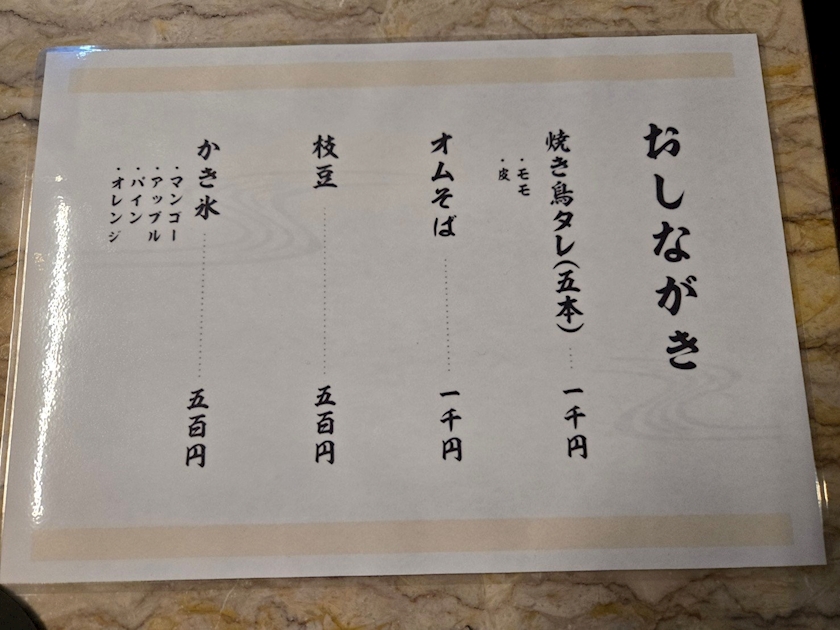 おしながき
焼き鳥タレ(五本)……一千円
・モモ
・皮
オムそば……一千円
枝豆……五百円
かき氷……五百円
・マンゴー
・アップル
・パイン
・オレンジ